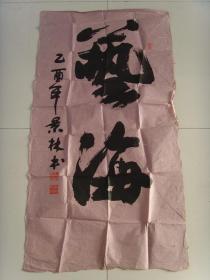 藝海
乙酉年景林书